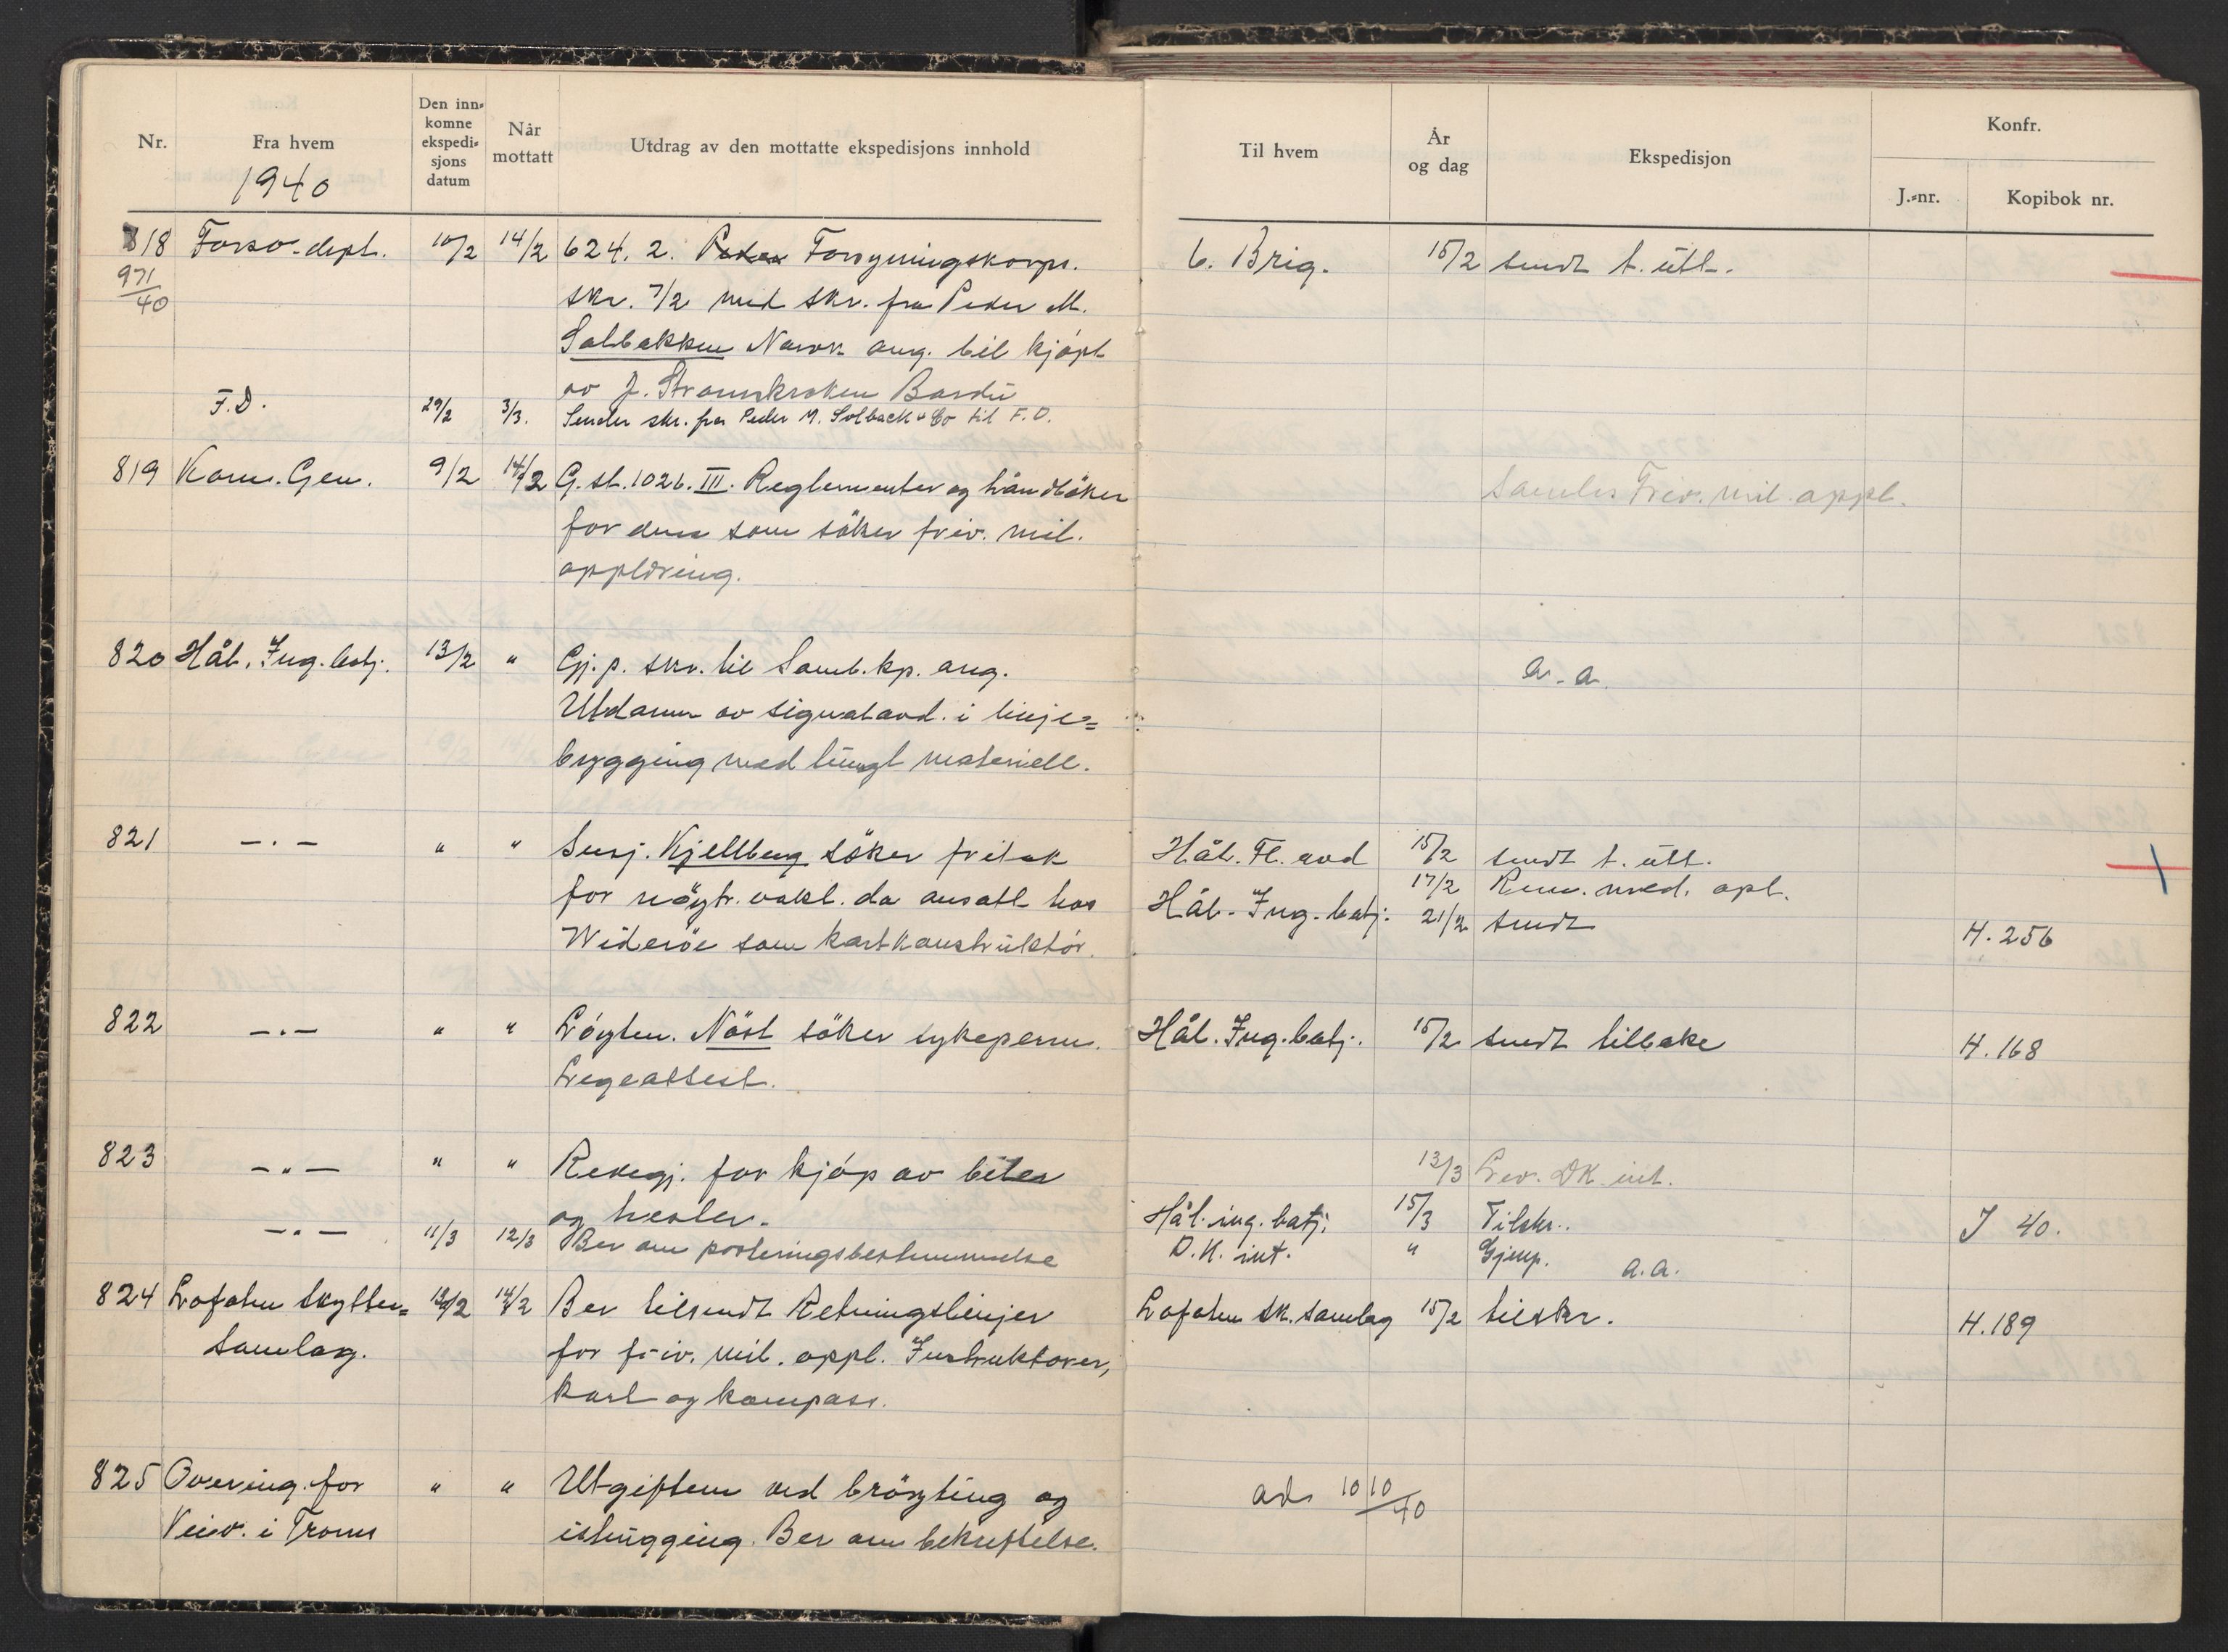 Nr.
Fra hvem
1940
Den inn-
komne
ekspedi-
sjons
datum
Når
mottatt
Utdrag av den mottatte ekspedisjons innhold
Til hvem
År
og dag
Ekspedisjon
Konfr.
J.-nr.
Kopibok nr.
818 Forsv.dept. 10/2 14/2 624. 2. Forsyningskorps. 6. Brig. 15/2 sendt t. utt.
971/40 skr. 7/2 med skr. fra Peder M.
Solbakken Narvk ang. bil kjöpt
av J. Strømskroken Bardu
F.D. 29/2 3/3. Sender skr. fra Peder M. Solback & Co til F.D.
819 Kom. Gen. 9/2 14/2 G. st. 1026. III. Reglementer og håndböker Samles Friv. mil. oppl.
for dem som söker friv. mil.
opplæring.
820 Hål. Ing. batj. 13/2 " Gj. p. skr. til Samb. kp. ang. a. a.
Utdann av signalavd. i linje=
bygging med tungt materiell.
821 — . — " " Serj. Kjellberg söker fritak Hål. Fl. avd 15/2 sendt t. utt.
17/2 Rem. med. opl.
for nöytr. vakt. da ansatt hos Hål. Ing. batj. 21/2 sendt H. 256
Wideröe som kartkonstruktör.
822 — . — " " Löyten. Näst söker sykeperm. Hål. Ing. batj. 15/2 sendt tilbake H. 168
Legeattest.
823 — " — " " Redegj. for kjöp av biler 13/3 Lev. DK int.
og hester.
— . — 11/3 12/3 Ber om posteringsbestemmelse Hål. ing. batj. 15/3 Tilskr. J 40.
D.K. int. " Gjenp. a.a.
824 Lofoten Skytter= 12/2 14/2 Ber tilsendt Retningslinjer Lofoten sk. samlag 15/2 tilskr. H. 189
samlag. for friv. mil. oppl. Instruktører,
kart og kompass.
825 Overing. for " " Utgiftene ved bröyting og ad. 1010/40
Veiv. i Troms ishugging. Ber om bekreftelse.